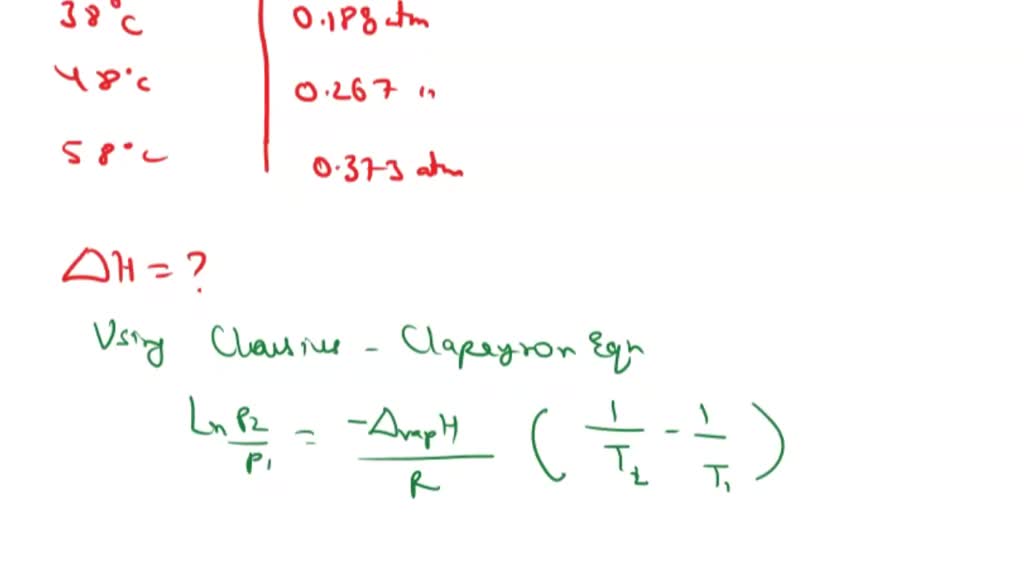 38°C 0.188 atm
48°C 0.267 "
58°C 0.373 atm
ΔH = ?
Using Clausius - Clapeyron Eqn
Ln P2/P1 = -ΔvapH/R ( 1/T2 - 1/T1 )